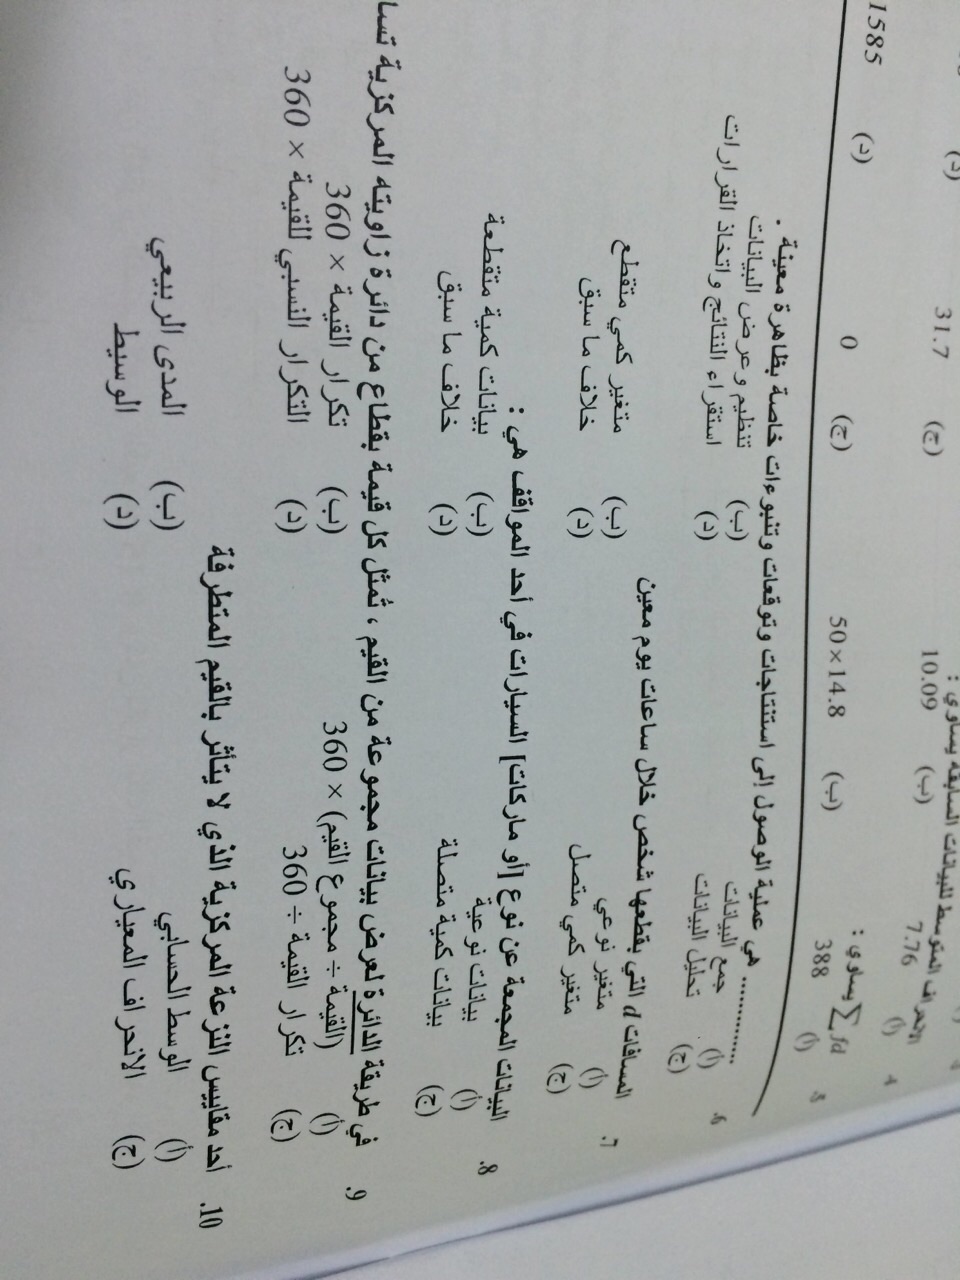 (د)
31.7 (ج) 10.09 (ب) 7.76 (أ) 4
الانحراف المتوسط للبيانات السابقة يساوي :
5. ∑fd يساوي :
(أ) 388 (ب) 50×14.8 (ج) 0 (د) 1585
6. .............. هي عملية الوصول إلى استنتاجات وتوقعات وتنبوءات خاصة بظاهرة معينة .
(أ) جمع البيانات (ب) تنظيم وعرض البيانات
(ج) تحليل البيانات (د) استقراء النتائج واتخاذ القرارات
7. المسافات d التي يقطعها شخص خلال ساعات يوم معين
(أ) متغير نوعي (ب) متغير كمي متقطع
(ج) متغير كمي متصل (د) خلاف ما سبق
8. البيانات المجمعة عن نوع [أو ماركات] السيارات في أحد المواقف هي :
(أ) بيانات نوعية (ب) بيانات كمية متقطعة
(ج) بيانات كمية متصلة (د) خلاف ما سبق
9. في طريقة الدائرة لعرض بيانات مجموعة من القيم ، تمثل كل قيمة بقطاع من دائرة زاويته المركزية تسا
(أ) (القيمة ÷ مجموع القيم) × 360 (ب) تكرار القيمة × 360
(ج) تكرار القيمة ÷ 360 (د) التكرار النسبي للقيمة × 360
10. أحد مقاييس النزعة المركزية الذي لا يتأثر بالقيم المتطرفة
(أ) الوسط الحسابي (ب) المدى الربيعي
(ج) الانحراف المعياري (د) الوسيط